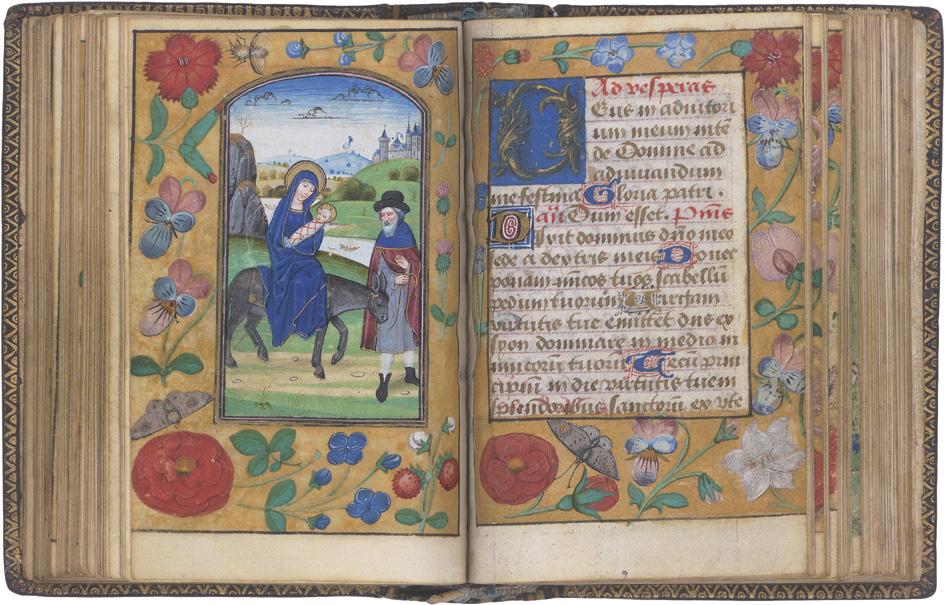 Ad vesperas
Deus in adiutori
um meum inte
de Domine ad
adiuuandum
me festina Gloria patri .
añ Dum esset. Psm̃s
Dixit dominus dño meo
sede a dextris meis Donec
ponam inĩcos tuos scabellũ
pedum tuorum Uirgam
virtutis tue emittet dñs ex
syon dominare in medio in
imicorũ tuorũ Tecũ prin
cipiũ in die virtutis tue in
splendoribus sanctorũ ex vte